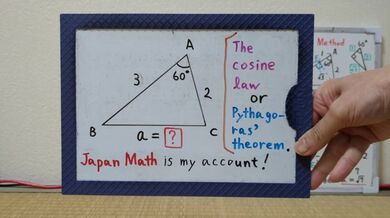 A
The
cosine
law
or
Pythago-
ras'
theorem.
3
60°
2
B
C
a = ?
Japan Math is my account!
Method